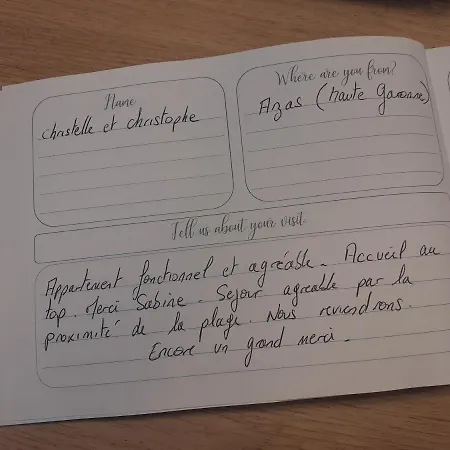 Name
Christelle et christophe
Where are you from?
Azas (haute Garonne)
Tell us about your visit
Appartement fonctionnel et agréable. Accueil au
top. Merci Sabine. Sejour agreable par la
proximité de la plage. Nous reviendrons.
Encore un grand merci.